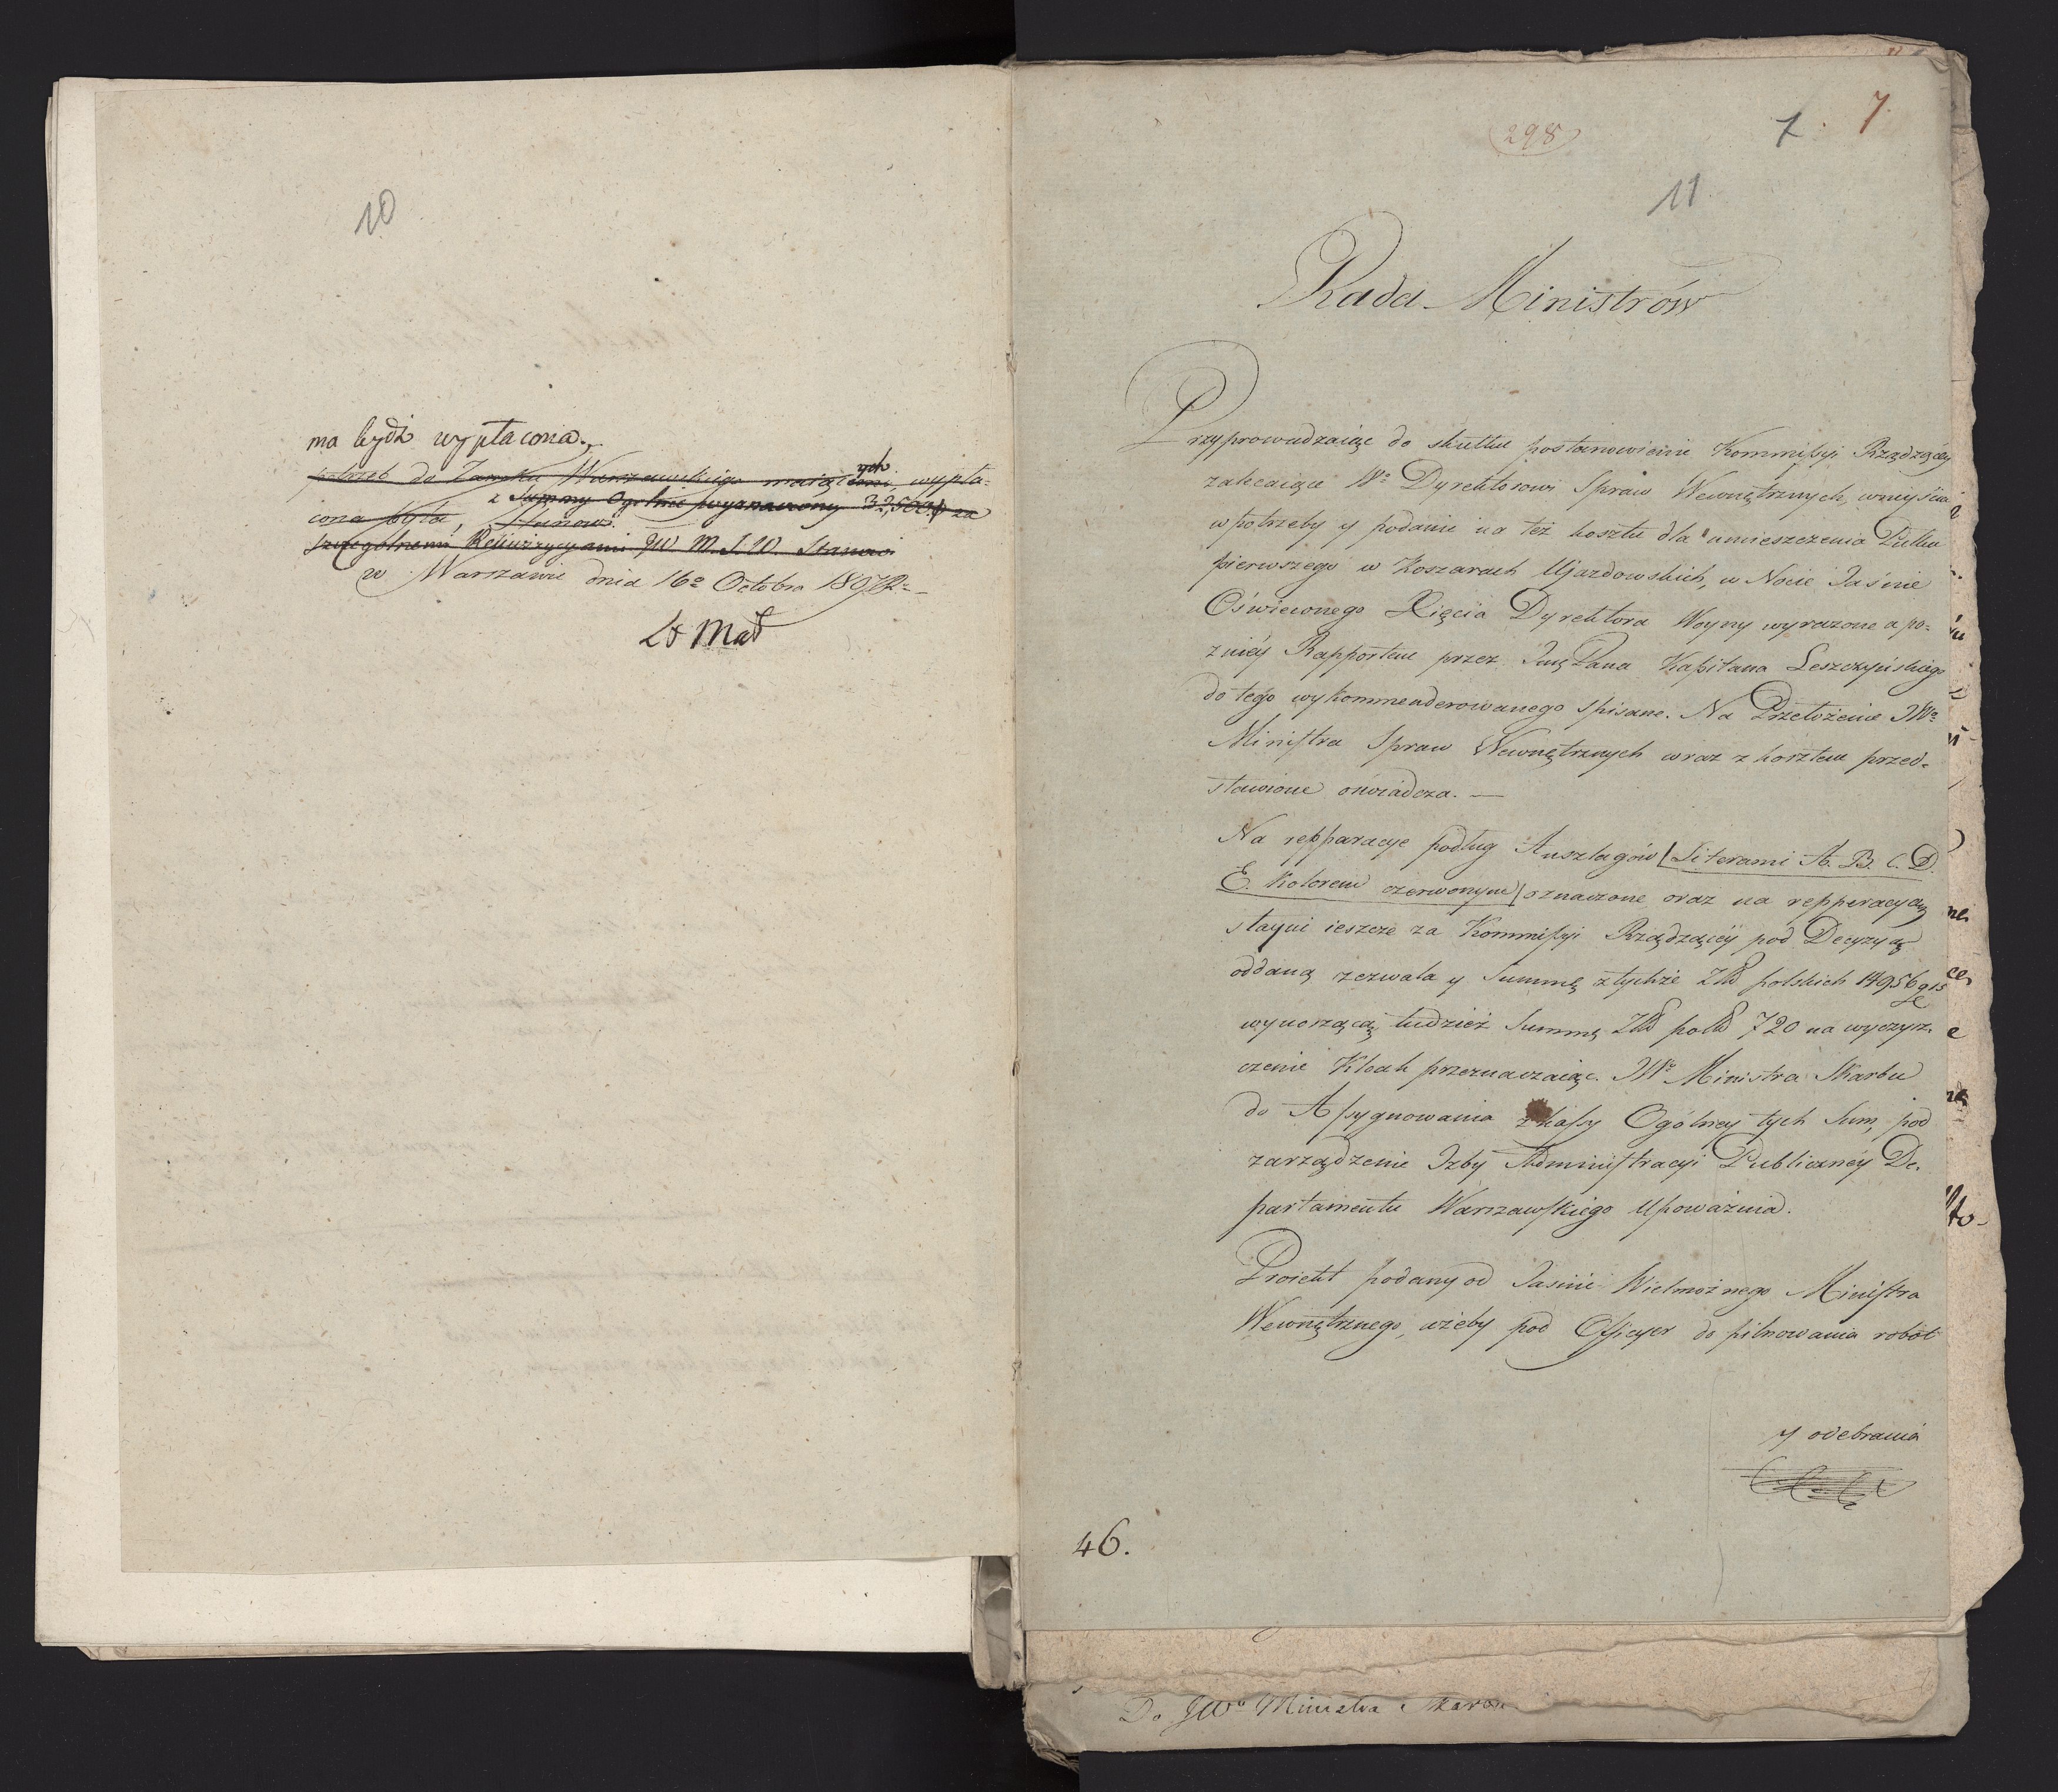 10
ma bydź wypłacona.
potrzeb do Zamku Warszawskiego maiącemi ych wypła-
z Summy Ogólnie wyznaczony 32,500 za
cona była,
szczególnemi Rekwizycyami JW. M. S. W. Stanowi
w Warszawie dnia 16o Octobra 1807 R=
298
7. 7.
11.
Rada Ministrów
Przyprowadzaiąc do skutku postanowienie Kommissyi Rządzącey
zalecaiące Wo Dyrektorowi Spraw Wewnętrznych, wniyście
w potrzeby y podanie na też kosztu dla umieszczenia Pułku
pierwszego w Koszarach Ujazdowskich, w Nocie Jaśnie
Oświeconego Xięcia Dyrektora Woyny wyrażone a po-
zniéy Rapportem przez Pana Kapitana Leszczyńskiego
do tego wykommenderowanego spisane. Na Przełożenie JWo
Ministra Spraw Wewnętrznych wraz z kosztem przed-
stawione oświadcza. —
Na repparacye podług Anszlagów / Literami A. B. C. D.
E. Kolorem czerwonym / oznaczone, oraz na repperacyą
stayni ieszcze za Kommissyi Rządzącéy pod Decyzyą
oddaną zezwala y Summę z tychże Złł polskich 14956 g 15
wynoszącą, tudzież Summę Złł pol 720 na wyczysz-
czenie Kloak przeznaczaiąc. JWo Ministra Skarbu
do Assygnowania z kassy Ogólney tych Sum, pod
zarządzenie Izby Administracyi Publicznéy De-
partamentu Warszawskiego Upoważnia.
Proiekt podany od Jaśnie Wielmożnego Ministra
Wewnętrznego, ażeby pod Officyer do pilnowania robót
y odebrania
46.
Do JWo Ministra Skarbu